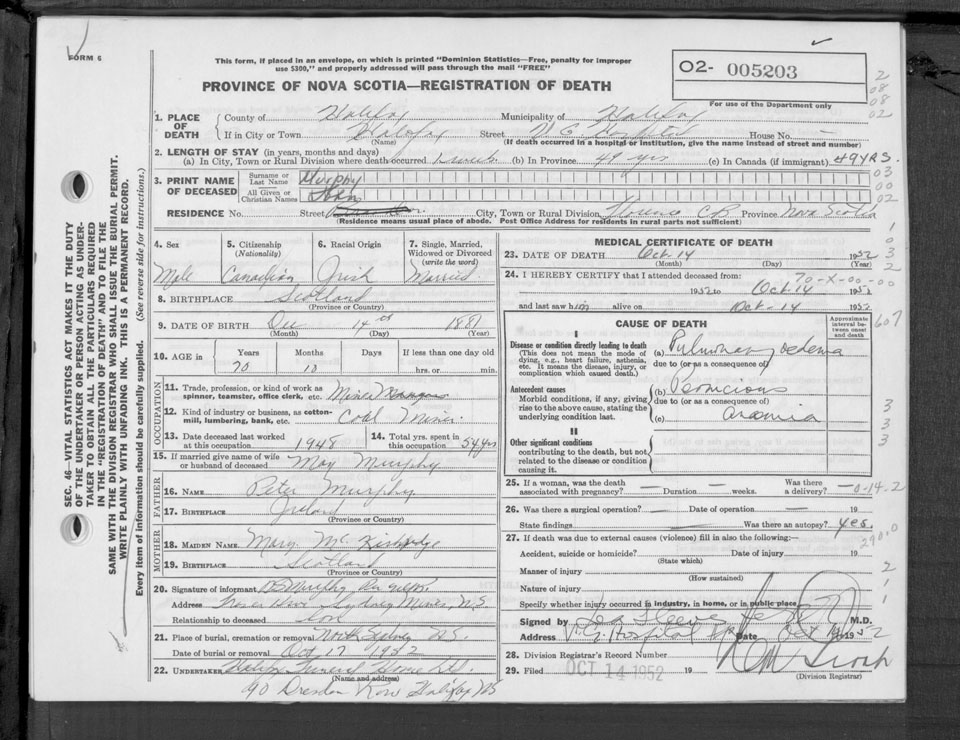 FORM 6
This form, if placed in an envelope, on which is printed "Dominion Statistics—Free, penalty for improper
use $300," and properly addressed will pass through the mail "FREE"
O2- 005203
For use of the Department only
PROVINCE OF NOVA SCOTIA—REGISTRATION OF DEATH
1. PLACE OF DEATH
County of Halifax Municipality of Halifax
If in City or Town Halifax Street V. G. Hospital House No. —
(Name) (If death occurred in a hospital or institution, give the name instead of street and number)
2. LENGTH OF STAY (in years, months and days)
(a) In City, Town or Rural Division where death occurred (b) In Province 49 yrs (c) In Canada (if immigrant) 49 YRS.
3. PRINT NAME OF DECEASED
Surname or Last Name Murphy
All Given or Christian Names
RESIDENCE No. Street City, Town or Rural Division Florence CB Province Nova Scotia
(Residence means usual place of abode. Post Office Address for residents in rural parts not sufficient)
4. Sex Male
5. Citizenship (Nationality) Canadian
6. Racial Origin Irish
7. Single, Married, Widowed or Divorced (write the word) Married
8. BIRTHPLACE Scotland
(Province or Country)
9. DATE OF BIRTH Dec 14 1881
(Month) (Day) (Year)
10. AGE in Years Months Days If less than one day old
70 10 hrs. or min.
OCCUPATION
11. Trade, profession, or kind of work as spinner, teamster, office clerk, etc. Mine Manager
12. Kind of industry or business, as cotton-mill, lumbering, bank, etc. Coal Mines
13. Date deceased last worked at this occupation 1948
14. Total yrs. spent in this occupation 54 yrs
15. If married give name of wife or husband of deceased May Murphy
FATHER
16. NAME Peter Murphy
17. BIRTHPLACE Ireland
(Province or Country)
MOTHER
18. MAIDEN NAME Mary Mc
19. BIRTHPLACE Scotland
(Province or Country)
20. Signature of informant Murphy
Address Sydney Mines, N.S.
Relationship to deceased son
21. Place of burial, cremation or removal North Sydney N.S.
Date of burial or removal Oct 17 1952
22. UNDERTAKER Halifax Funeral Home Ltd.
(Name and address)
90 Dresden Row Halifax NS
MEDICAL CERTIFICATE OF DEATH
23. DATE OF DEATH Oct. 14 1952
(Month) (Day) (Year)
24. I HEREBY CERTIFY that I attended deceased from:
70-X-00-00
1952 to Oct 14 1952
and last saw him alive on Oct-14 1952
CAUSE OF DEATH
Approximate interval between onset and death
I
Disease or condition directly leading to death
(This does not mean the mode of dying, e.g., heart failure, asthenia, etc. It means the disease, injury, or complication which caused death.)
(a) Pulmonary oedema
due to (or as a consequence of)
Antecedent causes
Morbid conditions, if any, giving rise to the above cause, stating the underlying condition last.
(b) Pernicious
due to (or as a consequence of)
(c) Anaemia
II
Other significant conditions
contributing to the death, but not related to the disease or condition causing it.
25. If a woman, was the death associated with pregnancy? — Duration — weeks. Was there a delivery? —
26. Was there a surgical operation? — Date of operation — 19
State findings Was there an autopsy? Yes.
27. If death was due to external causes (violence) fill in also the following:—
Accident, suicide or homicide? Date of injury 19
(State which)
Manner of injury
(How sustained)
Nature of injury
Specify whether injury occurred in industry, in home, or in public place
Signed by M.D.
Address V. G. Hospital Date Oct 1952
28. Division Registrar's Record Number
29. Filed OCT 14 1952 19
(Division Registrar)
SEC. 46 VITAL STATISTICS ACT MAKES IT THE DUTY
OF THE UNDERTAKER OR PERSON ACTING AS UNDER-
TAKER TO OBTAIN ALL THE PARTICULARS REQUIRED
IN THE "REGISTRATION OF DEATH" AND TO FILE THE
SAME WITH THE DIVISION REGISTRAR WHO SHALL ISSUE THE BURIAL PERMIT.
WRITE PLAINLY WITH UNFADING INK. THIS IS A PERMANENT RECORD.
Every item of information should be carefully supplied. (See reverse side for instructions.)